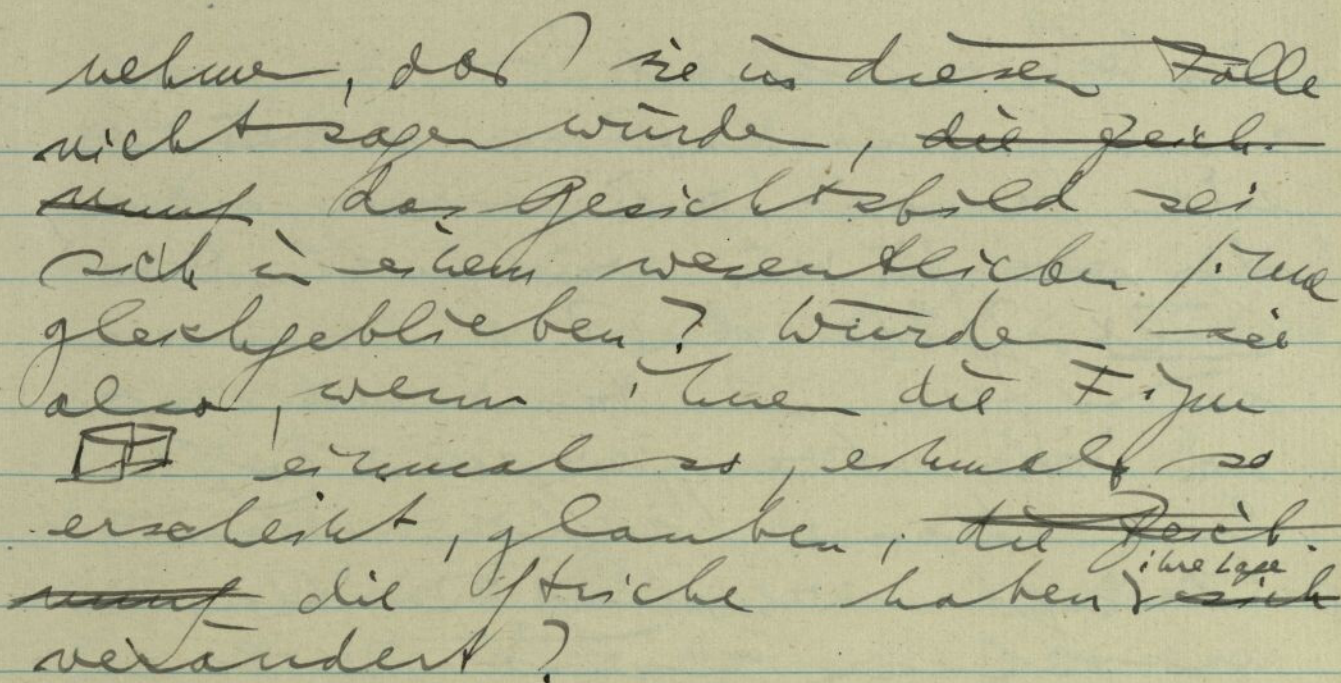 nehmen, daß sie in diesem Falle
nicht sagen würden, die Zeich-
nung das Gesichtsbild sei
sich in einem wesentlichen Sinne
gleichgeblieben? Würden sie
also, wenn ihnen die Figur
einmal so, einmal so
erscheint, glauben, die Zeich-
nung die Striche haben ihre Lage sich
verändert?